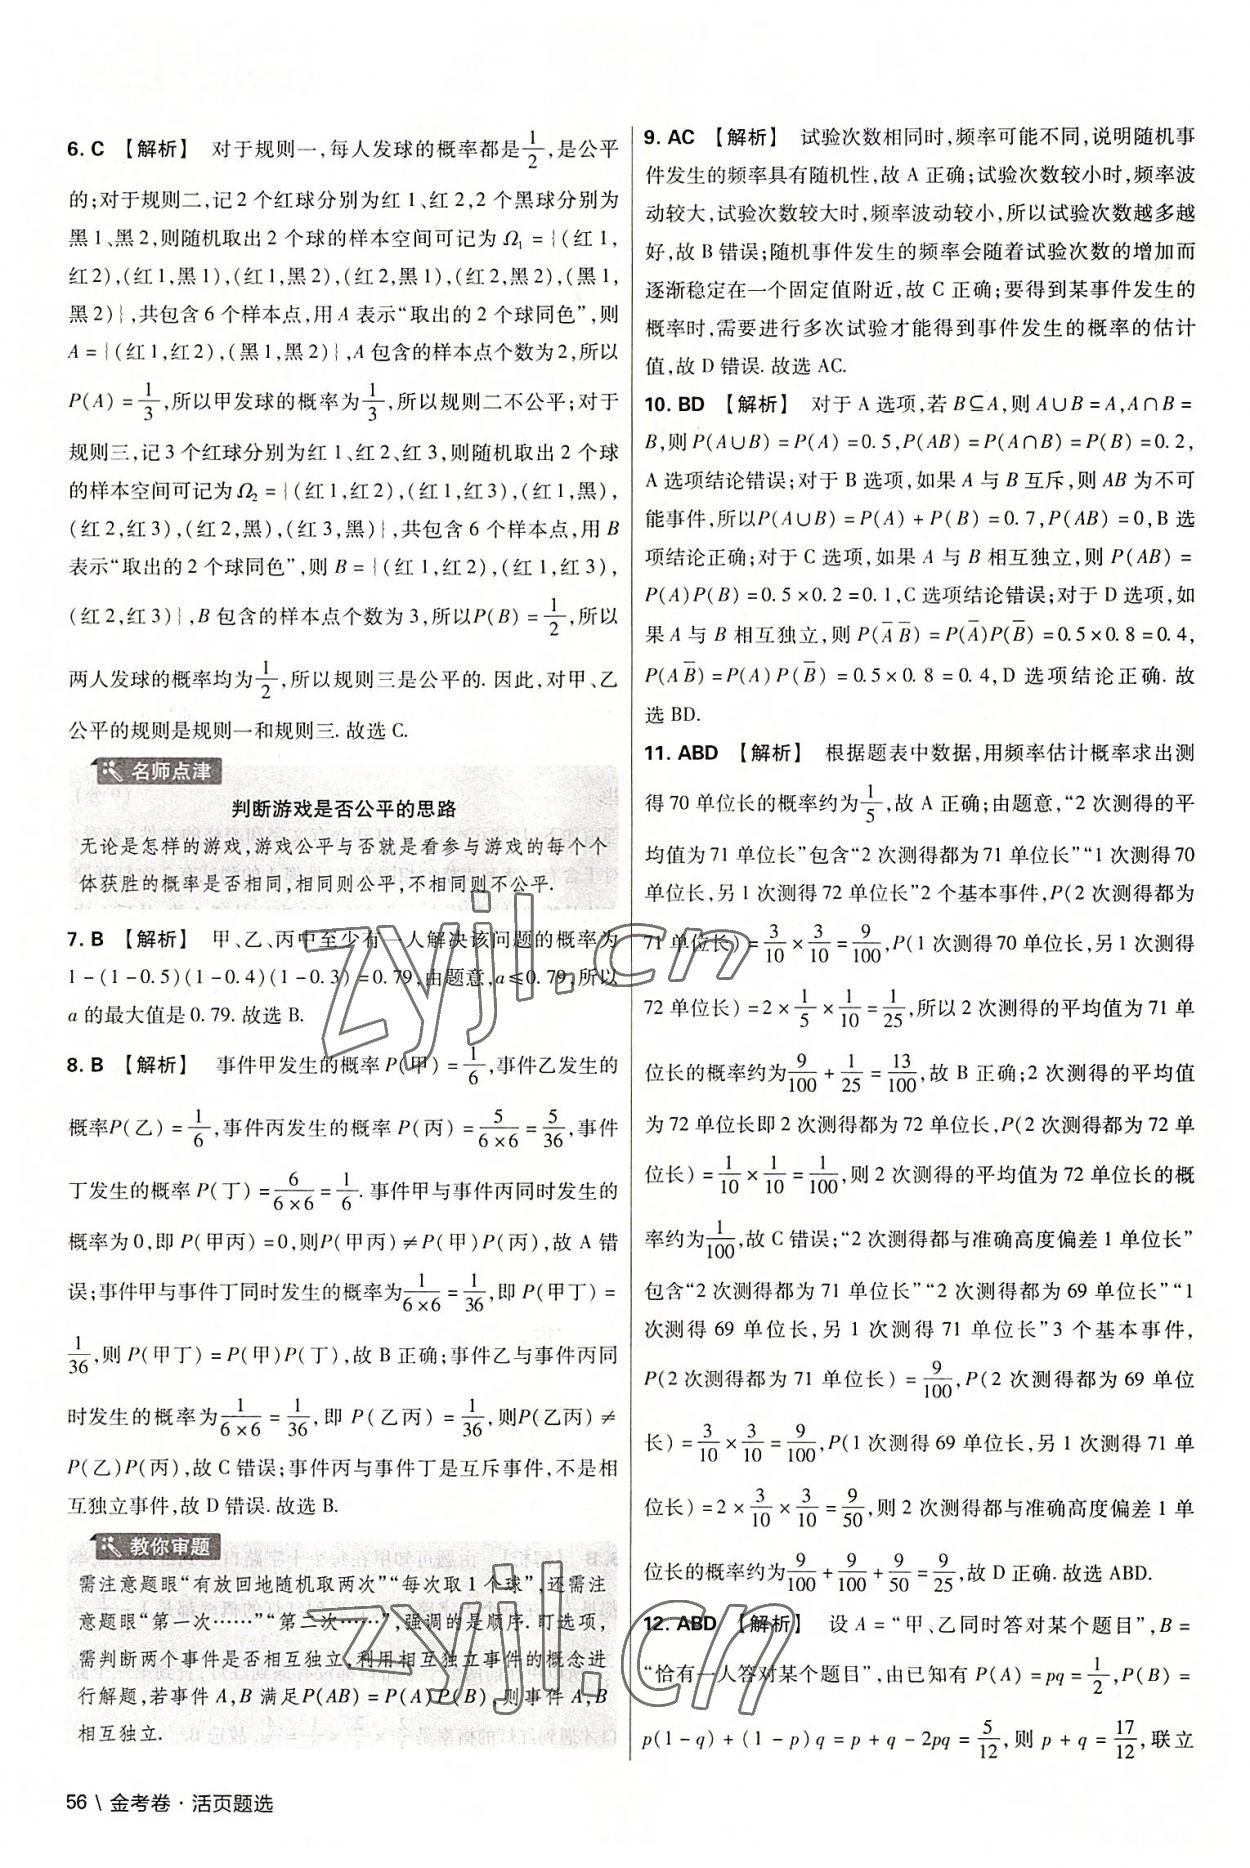 6. C 【解析】 对于规则一,每人发球的概率都是1/2,是公平
的;对于规则二,记2个红球分别为红1、红2,2个黑球分别为
黑1、黑2,则随机取出2个球的样本空间可记为Ω₁={(红1,
红2),(红1,黑1),(红1,黑2),(红2,黑1),(红2,黑2),(黑1,
黑2)},共包含6个样本点,用A表示“取出的2个球同色”,则
A={(红1,红2),(黑1,黑2)},A包含的样本点个数为2,所以
P(A)=1/3,所以甲发球的概率为1/3,所以规则二不公平;对于
规则三,记3个红球分别为红1、红2、红3,则随机取出2个球
的样本空间可记为Ω₂={(红1,红2),(红1,红3),(红1,黑),
(红2,红3),(红2,黑),(红3,黑)},共包含6个样本点,用B
表示“取出的2个球同色”,则B={(红1,红2),(红1,红3),
(红2,红3)},B包含的样本点个数为3,所以P(B)=1/2,所以
两人发球的概率均为1/2,所以规则三是公平的. 因此,对甲、乙
公平的规则是规则一和规则三. 故选C.
名师点津
判断游戏是否公平的思路
无论是怎样的游戏,游戏公平与否就是看参与游戏的每个个
体获胜的概率是否相同,相同则公平,不相同则不公平.
7. B 【解析】 甲、乙、丙中至少有一人解决该问题的概率为
1-(1-0.5)(1-0.4)(1-0.3)=0.79,由题意,a≤0.79,所以
a的最大值是0.79. 故选B.
8. B 【解析】 事件甲发生的概率P(甲)=1/6,事件乙发生的
概率P(乙)=1/6,事件丙发生的概率P(丙)=5/(6×6)=5/36,事件
丁发生的概率P(丁)=6/(6×6)=1/6. 事件甲与事件丙同时发生的
概率为0,即P(甲丙)=0,则P(甲丙)≠P(甲)P(丙),故A错
误;事件甲与事件丁同时发生的概率为1/(6×6)=1/36,即P(甲丁)=
1/36,则P(甲丁)=P(甲)P(丁),故B正确;事件乙与事件丙同
时发生的概率为1/(6×6)=1/36,即P(乙丙)=1/36,则P(乙丙)≠
P(乙)P(丙),故C错误;事件丙与事件丁是互斥事件,不是相
互独立事件,故D错误. 故选B.
教你审题
需注意题眼“有放回地随机取两次”“每次取1个球”,还需注
意题眼“第一次……”“第二次……”,强调的是顺序. 盯选项,
需判断两个事件是否相互独立,利用相互独立事件的概念进
行解题,若事件A,B满足P(AB)=P(A)P(B),则事件A,B
相互独立.
56 \ 金考卷·活页题选
9. AC 【解析】 试验次数相同时,频率可能不同,说明随机事
件发生的频率具有随机性,故A正确;试验次数较小时,频率波
动较大,试验次数较大时,频率波动较小,所以试验次数越多越
好,故B错误;随机事件发生的频率会随着试验次数的增加而
逐渐稳定在一个固定值附近,故C正确;要得到某事件发生的
概率时,需要进行多次试验才能得到事件发生的概率的估计
值,故D错误. 故选AC.
10. BD 【解析】 对于A选项,若B⊆A,则A∪B=A,A∩B=
B,则P(A∪B)=P(A)=0.5,P(AB)=P(A∩B)=P(B)=0.2,
A选项结论错误;对于B选项,如果A与B互斥,则AB为不可
能事件,所以P(A∪B)=P(A)+P(B)=0.7,P(AB)=0,B选
项结论正确;对于C选项,如果A与B相互独立,则P(AB)=
P(A)P(B)=0.5×0.2=0.1,C选项结论错误;对于D选项,如
果A与B相互独立,则P(A̅ B̅)=P(A̅)P(B̅)=0.5×0.8=0.4,
P(AB̅)=P(A)P(B̅)=0.5×0.8=0.4,D选项结论正确. 故
选BD.
11. ABD 【解析】 根据题表中数据,用频率估计概率求出测
得70单位长的概率约为1/5,故A正确;由题意,“2次测得的平
均值为71单位长”包含“2次测得都为71单位长”“1次测得70
单位长,另1次测得72单位长”2个基本事件,P(2次测得都为
71单位长)=3/10×3/10=9/100,P(1次测得70单位长,另1次测得
72单位长)=2×1/5×1/10=1/25,所以2次测得的平均值为71单
位长的概率约为9/100+1/25=13/100,故B正确;2次测得的平均值
为72单位长即2次测得都为72单位长,P(2次测得都为72单
位长)=1/10×1/10=1/100,则2次测得的平均值为72单位长的概
率约为1/100,故C错误;“2次测得都与准确高度偏差1单位长”
包含“2次测得都为71单位长”“2次测得都为69单位长”“1
次测得69单位长,另1次测得71单位长”3个基本事件,
P(2次测得都为71单位长)=9/100,P(2次测得都为69单位
长)=3/10×3/10=9/100,P(1次测得69单位长,另1次测得71单
位长)=2×3/10×3/10=9/50,则2次测得都与准确高度偏差1单
位长的概率为9/100+9/100+9/50=9/25,故D正确. 故选ABD.
12. ABD 【解析】 设A=“甲、乙同时答对某个题目”,B=
“恰有一人答对某个题目”,由已知有P(A)=pq=1/2,P(B)=
p(1-q)+(1-p)q=p+q-2pq=5/12,则p+q=17/12,联立
zyjl.cn
zyjl.cn